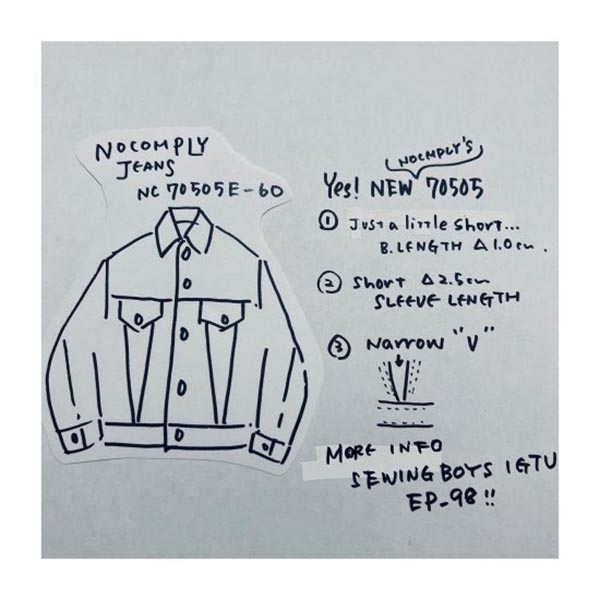 NOCOMPLY
JEANS
NC 70505E-60
NOCMPLY'S
Yes! NEW 70505
① Just a little short...
B.LENGTH Δ1.0cm.
② Short Δ2.5cm
SLEEVE LENGTH
③ Narrow "V"
MORE INFO
SEWING BOYS IGTV
EP-98!!